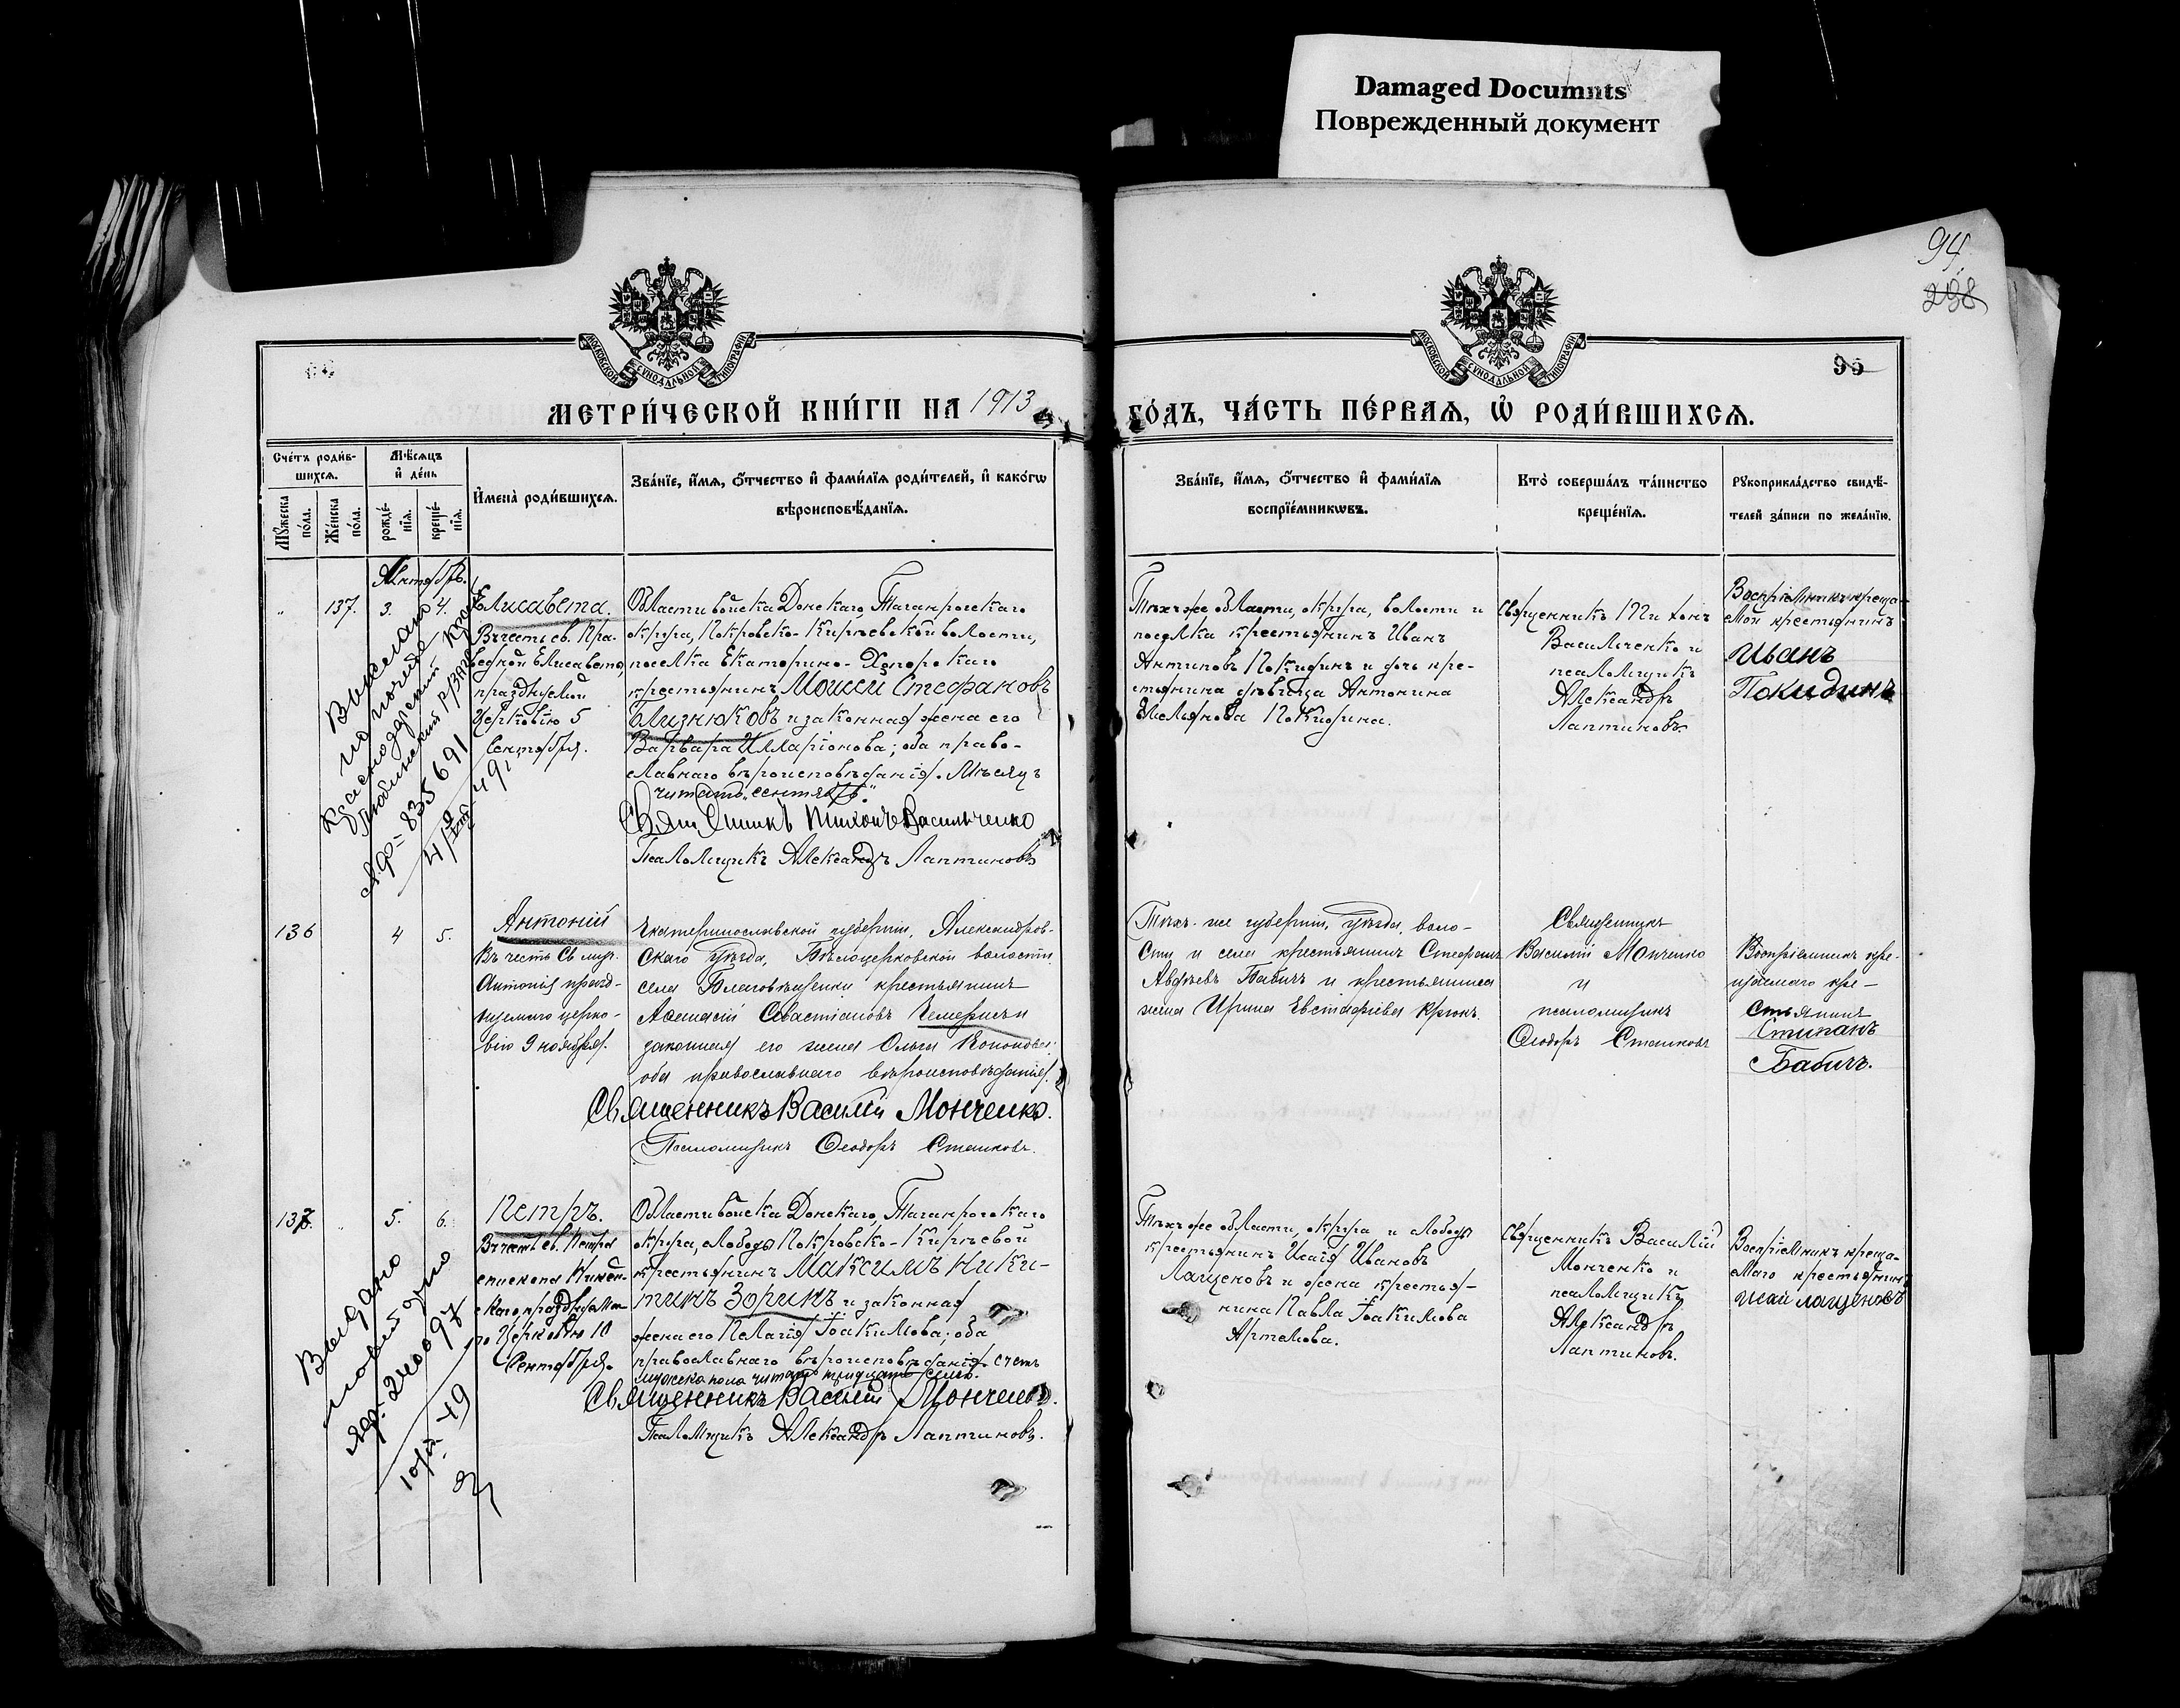 Damaged Documnts
Поврежденный документ
94
238
95
МОСКОВСКОЙ СѴНОДАЛЬНОЙ ТИПОГРАФІИ
МОСКОВСКОЙ СѴНОДАЛЬНОЙ ТИПОГРАФІИ
МЕТРИ́ЧЕСКОЙ КНИ́ГИ НА 1913
ГО́ДЪ, ЧА́СТЬ ПЕ́РВАЯ, Ѡ РОДИ́ВШИХСЯ.
Сче́тъ роди́в-
шихся.
Мѣ́сяцъ
и де́нь
Мꙋжеска по́ла.
Же́нска по́ла.
рожде́-
нїя.
креще́-
нїя.
И҆мена̀ роди́вшихся.
Зва́нїе, и҆́мя, ѻ҆́тчество и҆ фами́лїя роди́телей, и҆ како́гѡ
вѣроисповѣ́данїя.
Зва́нїе, и҆́мя, ѻ҆́тчество и҆ фами́лїя
воспрїе́мникѡвъ.
Кто̀ соверша́лъ та́инство
креще́нїя.
Рꙋкоприкла́дство свидѣ́-
телей за́писи по жела́нїю.
137.
3.
4.
Елисавета.
Въ честь св. Пра-
ведной Елисаветы,
празднуемой
Церковію 5
Сентября.
Области войска Донскаго, Таганрогскаго
округа, Покровско-Кирѣевской волости,
поселка Екатерино-Хопорскаго
крестьянинъ Моисей Стефановъ
Близнюковъ и законная жена его
Варвара Илларіонова; оба право-
славнаго вѣроисповѣданія. Мѣсяцъ
читать „сентябрь."
Священникъ Тихонъ Васильченко
Псаломщикъ Александръ Лаптиновъ
Тѣхъ же области, округа, волости и
поселка крестьянинъ Иванъ
Антиповъ Покидинъ и дочь кре-
стьянина дѣвица Антонина
Емельянова Покидина.
Священникъ Тихонъ
Васильченко и
псаломщикъ
Александръ
Лаптиновъ.
Воспріемникъ креща-
мой крестьянинъ
Иванъ
Покидинъ
№ 835691
136
4
5.
Антоній
Въ честь Св. муч.
Антонія празд-
нуемаго церко-
вію 9 ноября.
Екатеринославской губерніи, Александров-
скаго уѣзда, Бѣлоцерковской волости,
села Благовѣщенки крестьянинъ
Аѳанасій Севастіановъ Чемеричъ и
законная его жена Ольга Кононова;
оба православнаго вѣроисповѣданія.
Священникъ Василій Монченко.
Псаломщикъ Ѳеодоръ Сташковъ.
Тѣхъ же губерніи, уѣзда, воло-
сти и села крестьянинъ Стефанъ
Авдѣевъ Бабичъ и крестьянина
жена Ирина Евстафіева Крюкъ.
Священникъ
Василій Монченко
и
псаломщикъ
Ѳеодоръ Сташковъ
Воспріемникъ кре-
щаемаго кре-
стьянинъ
Стипанъ
Бабичъ.
137.
5.
6.
Петръ.
Въ честь св. Петра
епископа Никей-
скаго празднуема-
го Церковію 10
Сентября.
Области войска Донскаго, Таганрогскаго
округа, слободы Покровско-Кирѣевой
крестьянинъ Максимъ Ники-
тинъ Зоринъ и законная
жена его Пелагія Іоакимова; оба
православнаго вѣроисповѣданія. Счетъ
мужеска пола читать тридцать семь.
Священникъ Василій Монченко.
Псаломщикъ Александръ Лаптиновъ.
Тѣхъ же области, округа и слободы
крестьянинъ Исаія Ивановъ
Лащеновъ и жена крестья-
нина Павла Іоакимова
Артемова.
Священникъ Василій
Монченко и
псаломщикъ
Александръ
Лаптиновъ.
Воспріемникъ креща-
емаго крестьянинъ
Исаи Лащеновъ
Выдано
240097